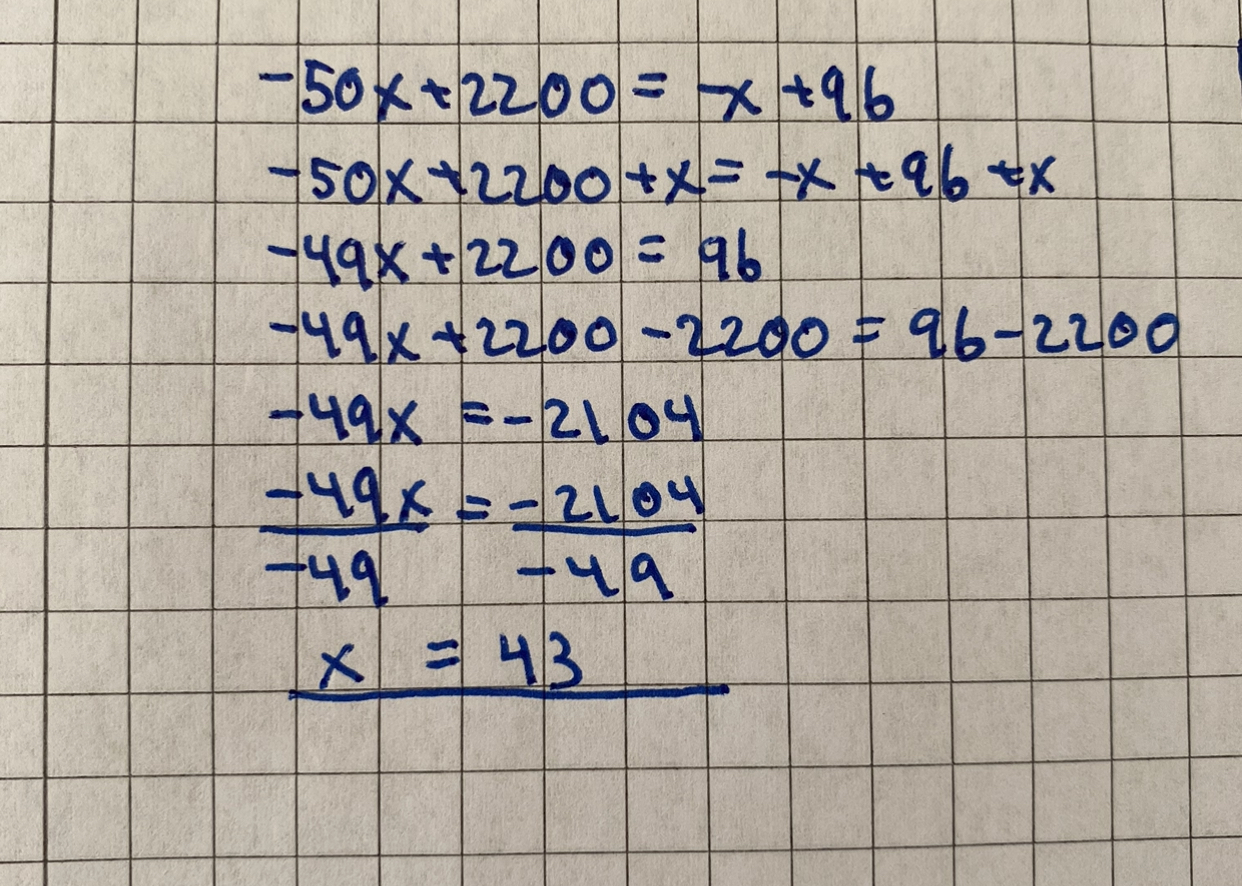 -50x+2200 = -x +96
-50x+2200+x= -x +96 +x
-49x+2200 = 96
-49x+2200-2200 = 96-2200
-49x =-2104
-49x = -2104
-49 -49
x = 43